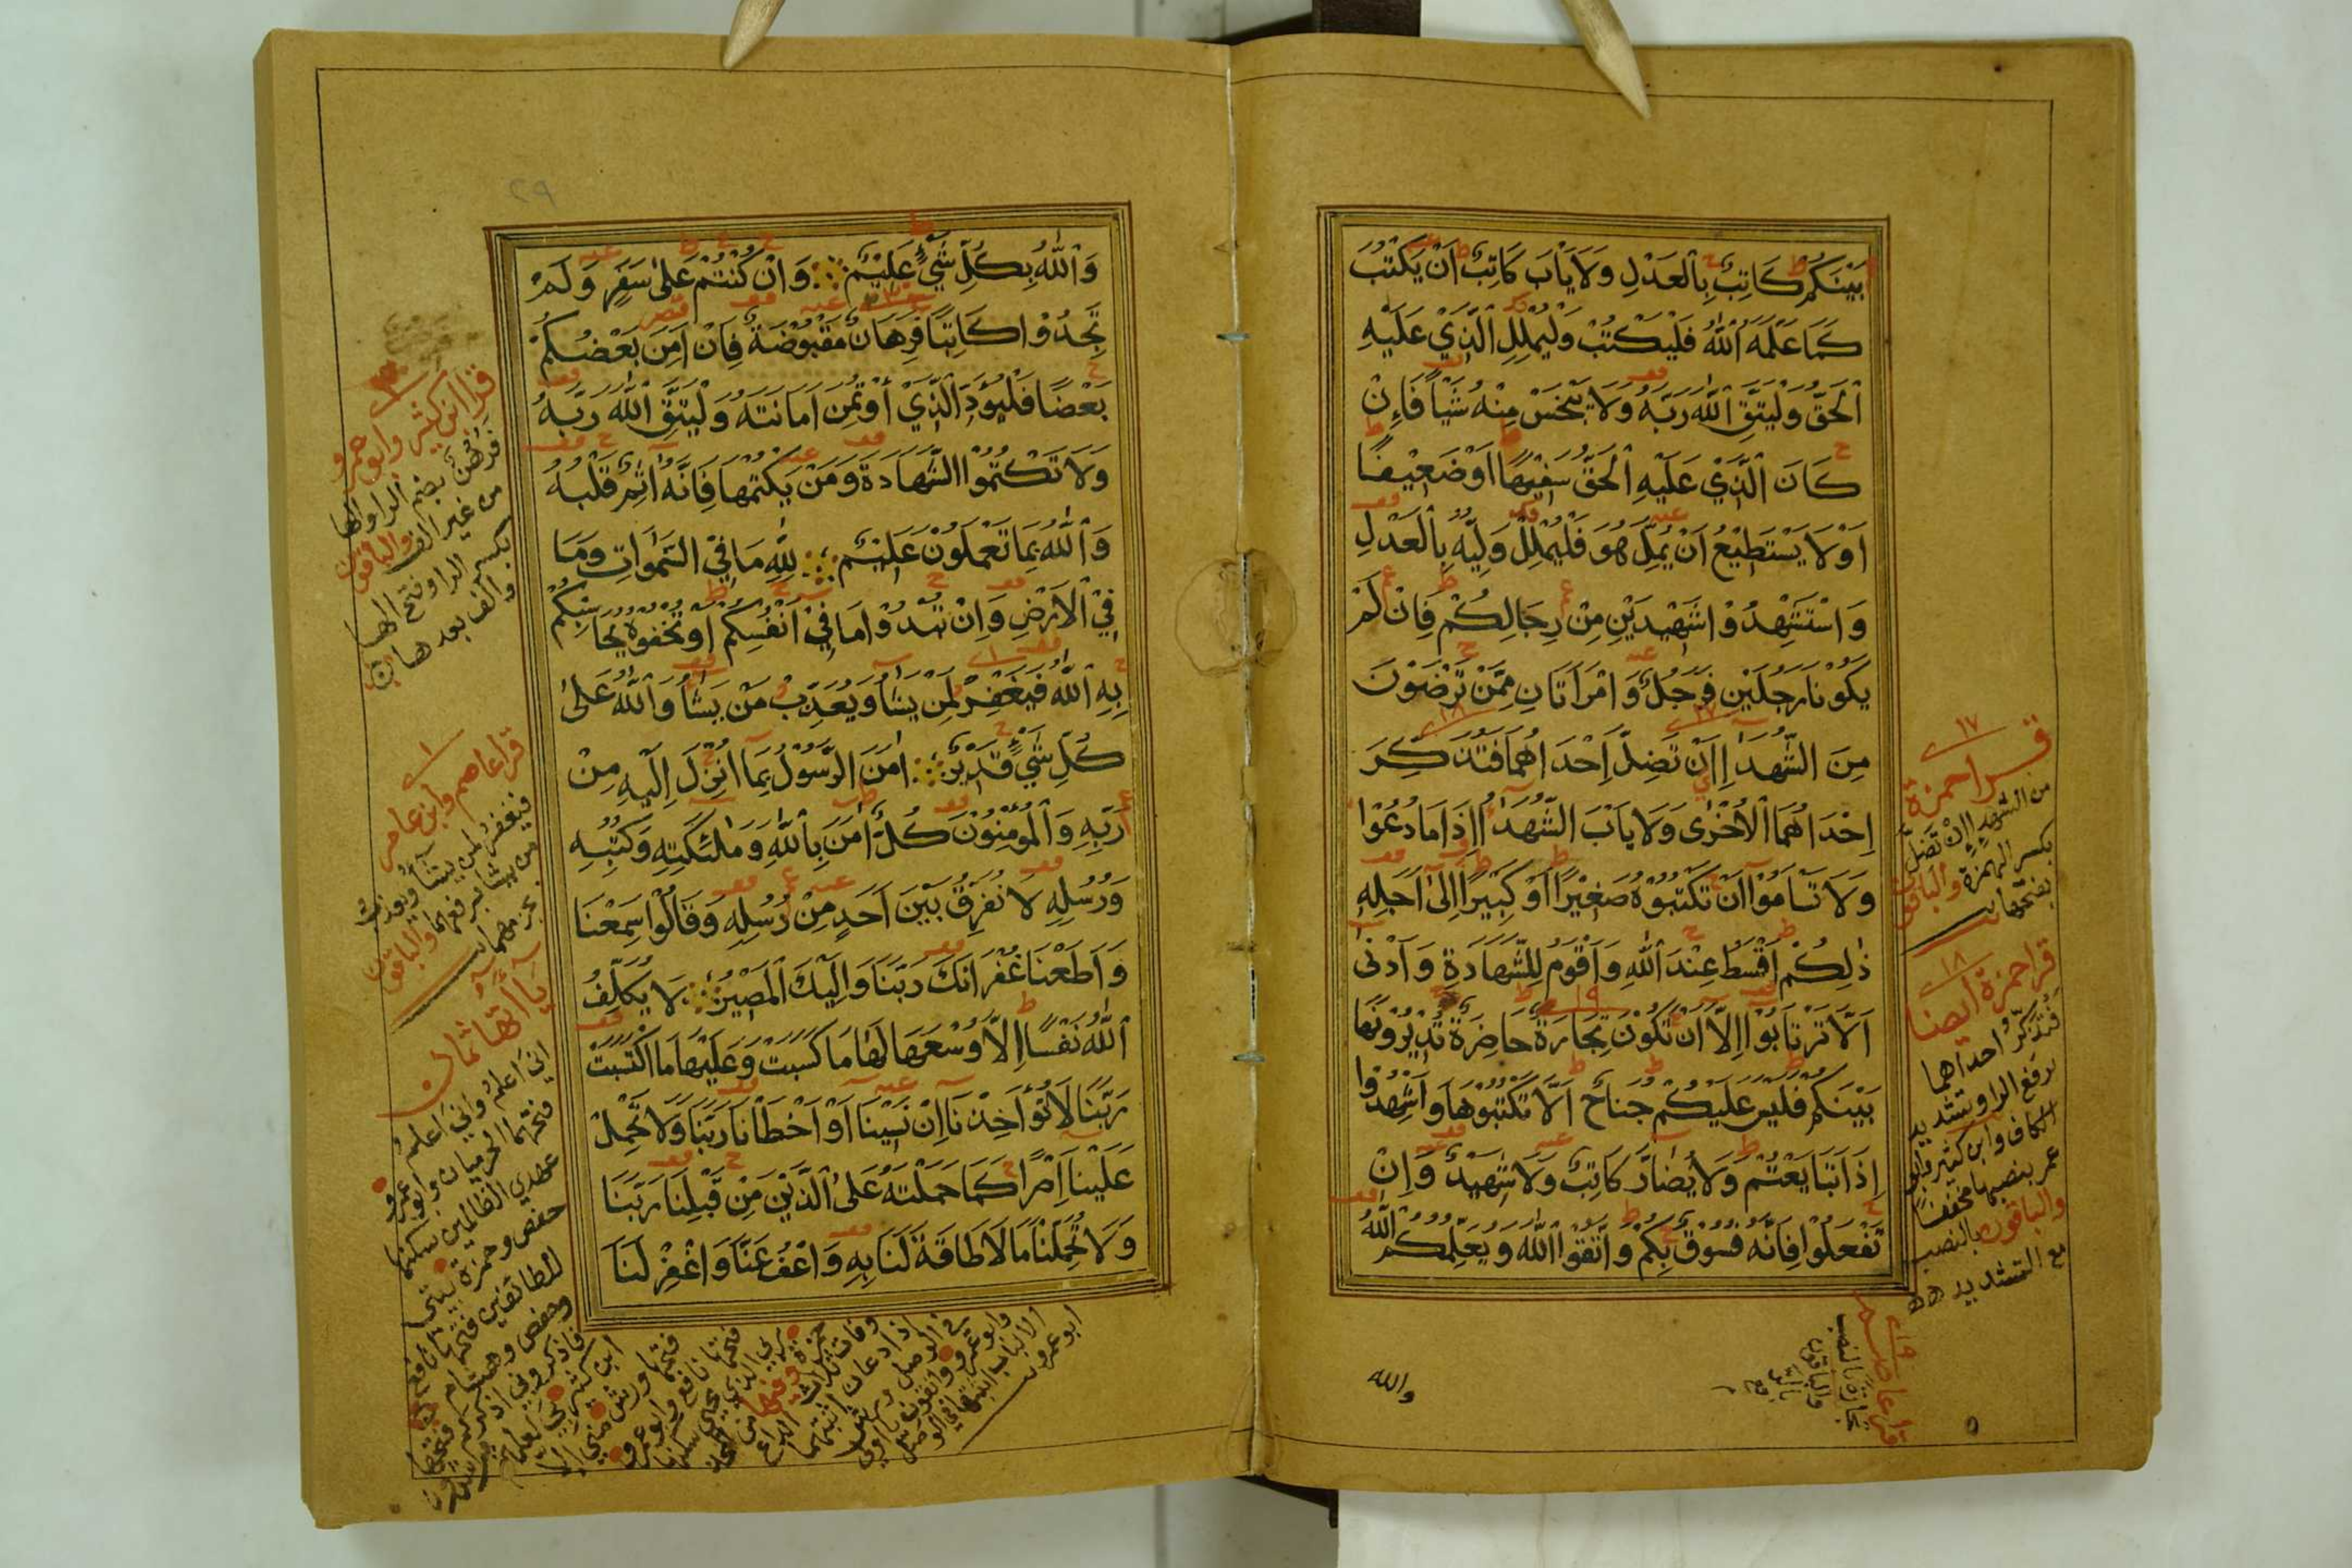 بَيْنَكُمْ كَاتِبٌ بِالْعَدْلِ وَلَا يَابَ كَاتِبٌ اَنْ يَكْتُبَ
كَمَا عَلَّمَهُ اللّٰهُ فَلْيَكْتُبْ وَلْيُمْلِلِ الَّذِيْ عَلَيْهِ
الْحَقُّ وَلْيَتَّقِ اللّٰهَ رَبَّهُ وَلَا يَبْخَسْ مِنْهُ شَيْاً فَاِنْ
كَانَ الَّذِيْ عَلَيْهِ الْحَقُّ سَفِيْهًا اَوْ ضَعِيْفًا
اَوْ لَا يَسْتَطِيْعُ اَنْ يُمِلَّ هُوَ فَلْيُمْلِلْ وَلِيُّهُ بِالْعَدْلِ
وَاسْتَشْهِدُوْا شَهِيْدَيْنِ مِنْ رِجَالِكُمْ فَاِنْ لَمْ
يَكُوْنَا رَجُلَيْنِ فَرَجُلٌ وَامْرَاَتَانِ مِمَّنْ تَرْضَوْنَ
مِنَ الشُّهَدَاءِ اَنْ تَضِلَّ اِحْدَاهُمَا فَتُذَكِّرَ
اِحْدَاهُمَا الْاُخْرٰى وَلَا يَابَ الشُّهَدَاءُ اِذَا مَا دُعُوْا
وَلَا تَسْاَمُوْا اَنْ تَكْتُبُوْهُ صَغِيْرًا اَوْ كَبِيْرًا اِلٰى اَجَلِهِ
ذٰلِكُمْ اَقْسَطُ عِنْدَ اللّٰهِ وَاَقْوَمُ لِلشَّهَادَةِ وَاَدْنٰى
اَلَّا تَرْتَابُوْا اِلَّا اَنْ تَكُوْنَ تِجَارَةً حَاضِرَةً تُدِيْرُوْنَهَا
بَيْنَكُمْ فَلَيْسَ عَلَيْكُمْ جُنَاحٌ اَلَّا تَكْتُبُوْهَا وَاَشْهِدُوْا
اِذَا تَبَايَعْتُمْ وَلَا يُضَارَّ كَاتِبٌ وَلَا شَهِيْدٌ وَاِنْ
تَفْعَلُوْا فَاِنَّهُ فُسُوْقٌ بِكُمْ وَاتَّقُوا اللّٰهَ وَيُعَلِّمُكُمُ اللّٰهُ
١٧
قرا حمزة
من الشهداء إن تضل
بكسر الهمزة والباقون
بفتحها
١٨
قرا حمزة ايضا
فتذكر احداهما
برفع الرا وتشديد
الكاف وابن كثير وابو
عمر بنصبها مخففا
والباقون بالنصب
مع التشديد
١٩
قرا عاصم
تجارة بالنصب
والباقون
بالرفع
والله
٢٩
وَاللّٰهُ بِكُلِّ شَيْءٍ عَلِيْمٌ وَاِنْ كُنْتُمْ عَلٰى سَفَرٍ وَلَمْ
تَجِدُوْا كَاتِبًا فَرِهَانٌ مَقْبُوْضَةٌ فَاِنْ اَمِنَ بَعْضُكُمْ
بَعْضًا فَلْيُؤَدِّ الَّذِي اؤْتُمِنَ اَمَانَتَهُ وَلْيَتَّقِ اللّٰهَ رَبَّهُ
وَلَا تَكْتُمُوا الشَّهَادَةَ وَمَنْ يَكْتُمْهَا فَاِنَّهُ اٰثِمٌ قَلْبُهُ
وَاللّٰهُ بِمَا تَعْمَلُوْنَ عَلِيْمٌ لِلّٰهِ مَا فِي السَّمٰوَاتِ وَمَا
فِي الْاَرْضِ وَاِنْ تُبْدُوْا مَا فِيْ اَنْفُسِكُمْ اَوْ تُخْفُوْهُ يُحَاسِبْكُمْ
بِهِ اللّٰهُ فَيَغْفِرُ لِمَنْ يَشَاءُ وَيُعَذِّبُ مَنْ يَشَاءُ وَاللّٰهُ عَلٰى
كُلِّ شَيْءٍ قَدِيْرٌ اٰمَنَ الرَّسُوْلُ بِمَا اُنْزِلَ اِلَيْهِ مِنْ
رَبِّهِ وَالْمُؤْمِنُوْنَ كُلٌّ اٰمَنَ بِاللّٰهِ وَمَلٰئِكَتِهِ وَكُتُبِهِ
وَرُسُلِهِ لَا نُفَرِّقُ بَيْنَ اَحَدٍ مِنْ رُسُلِهِ وَقَالُوْا سَمِعْنَا
وَاَطَعْنَا غُفْرَانَكَ رَبَّنَا وَاِلَيْكَ الْمَصِيْرُ لَا يُكَلِّفُ
اللّٰهُ نَفْسًا اِلَّا وُسْعَهَا لَهَا مَا كَسَبَتْ وَعَلَيْهَا مَا اكْتَسَبَتْ
رَبَّنَا لَا تُؤَاخِذْنَا اِنْ نَسِيْنَا اَوْ اَخْطَاْنَا رَبَّنَا وَلَا تَحْمِلْ
عَلَيْنَا اِصْرًا كَمَا حَمَلْتَهُ عَلَى الَّذِيْنَ مِنْ قَبْلِنَا رَبَّنَا
وَلَا تُحَمِّلْنَا مَا لَا طَاقَةَ لَنَا بِهِ وَاعْفُ عَنَّا وَاغْفِرْ لَنَا
قرا ابن كثير وابو عمرو
فرهن بضم الرا والها
من غير الف والباقون
بكسر الرا وفتح الها
والف بعدها
قرا عاصم وابن عامر
فيغفر لمن يشاء ويعذب
من يشا برفعهما والباقون
بجزمهما
يا اتها ثمان
اني اعلم واني اعلم
فتحهما الحرميان وابو عمرو
عهدي الظالمين سكنها
حفص وحمزة بيتي
للطائفين فتحها نافع
وحفص وهشام
فاذكروني اذكركم فتحها
ابن كثير